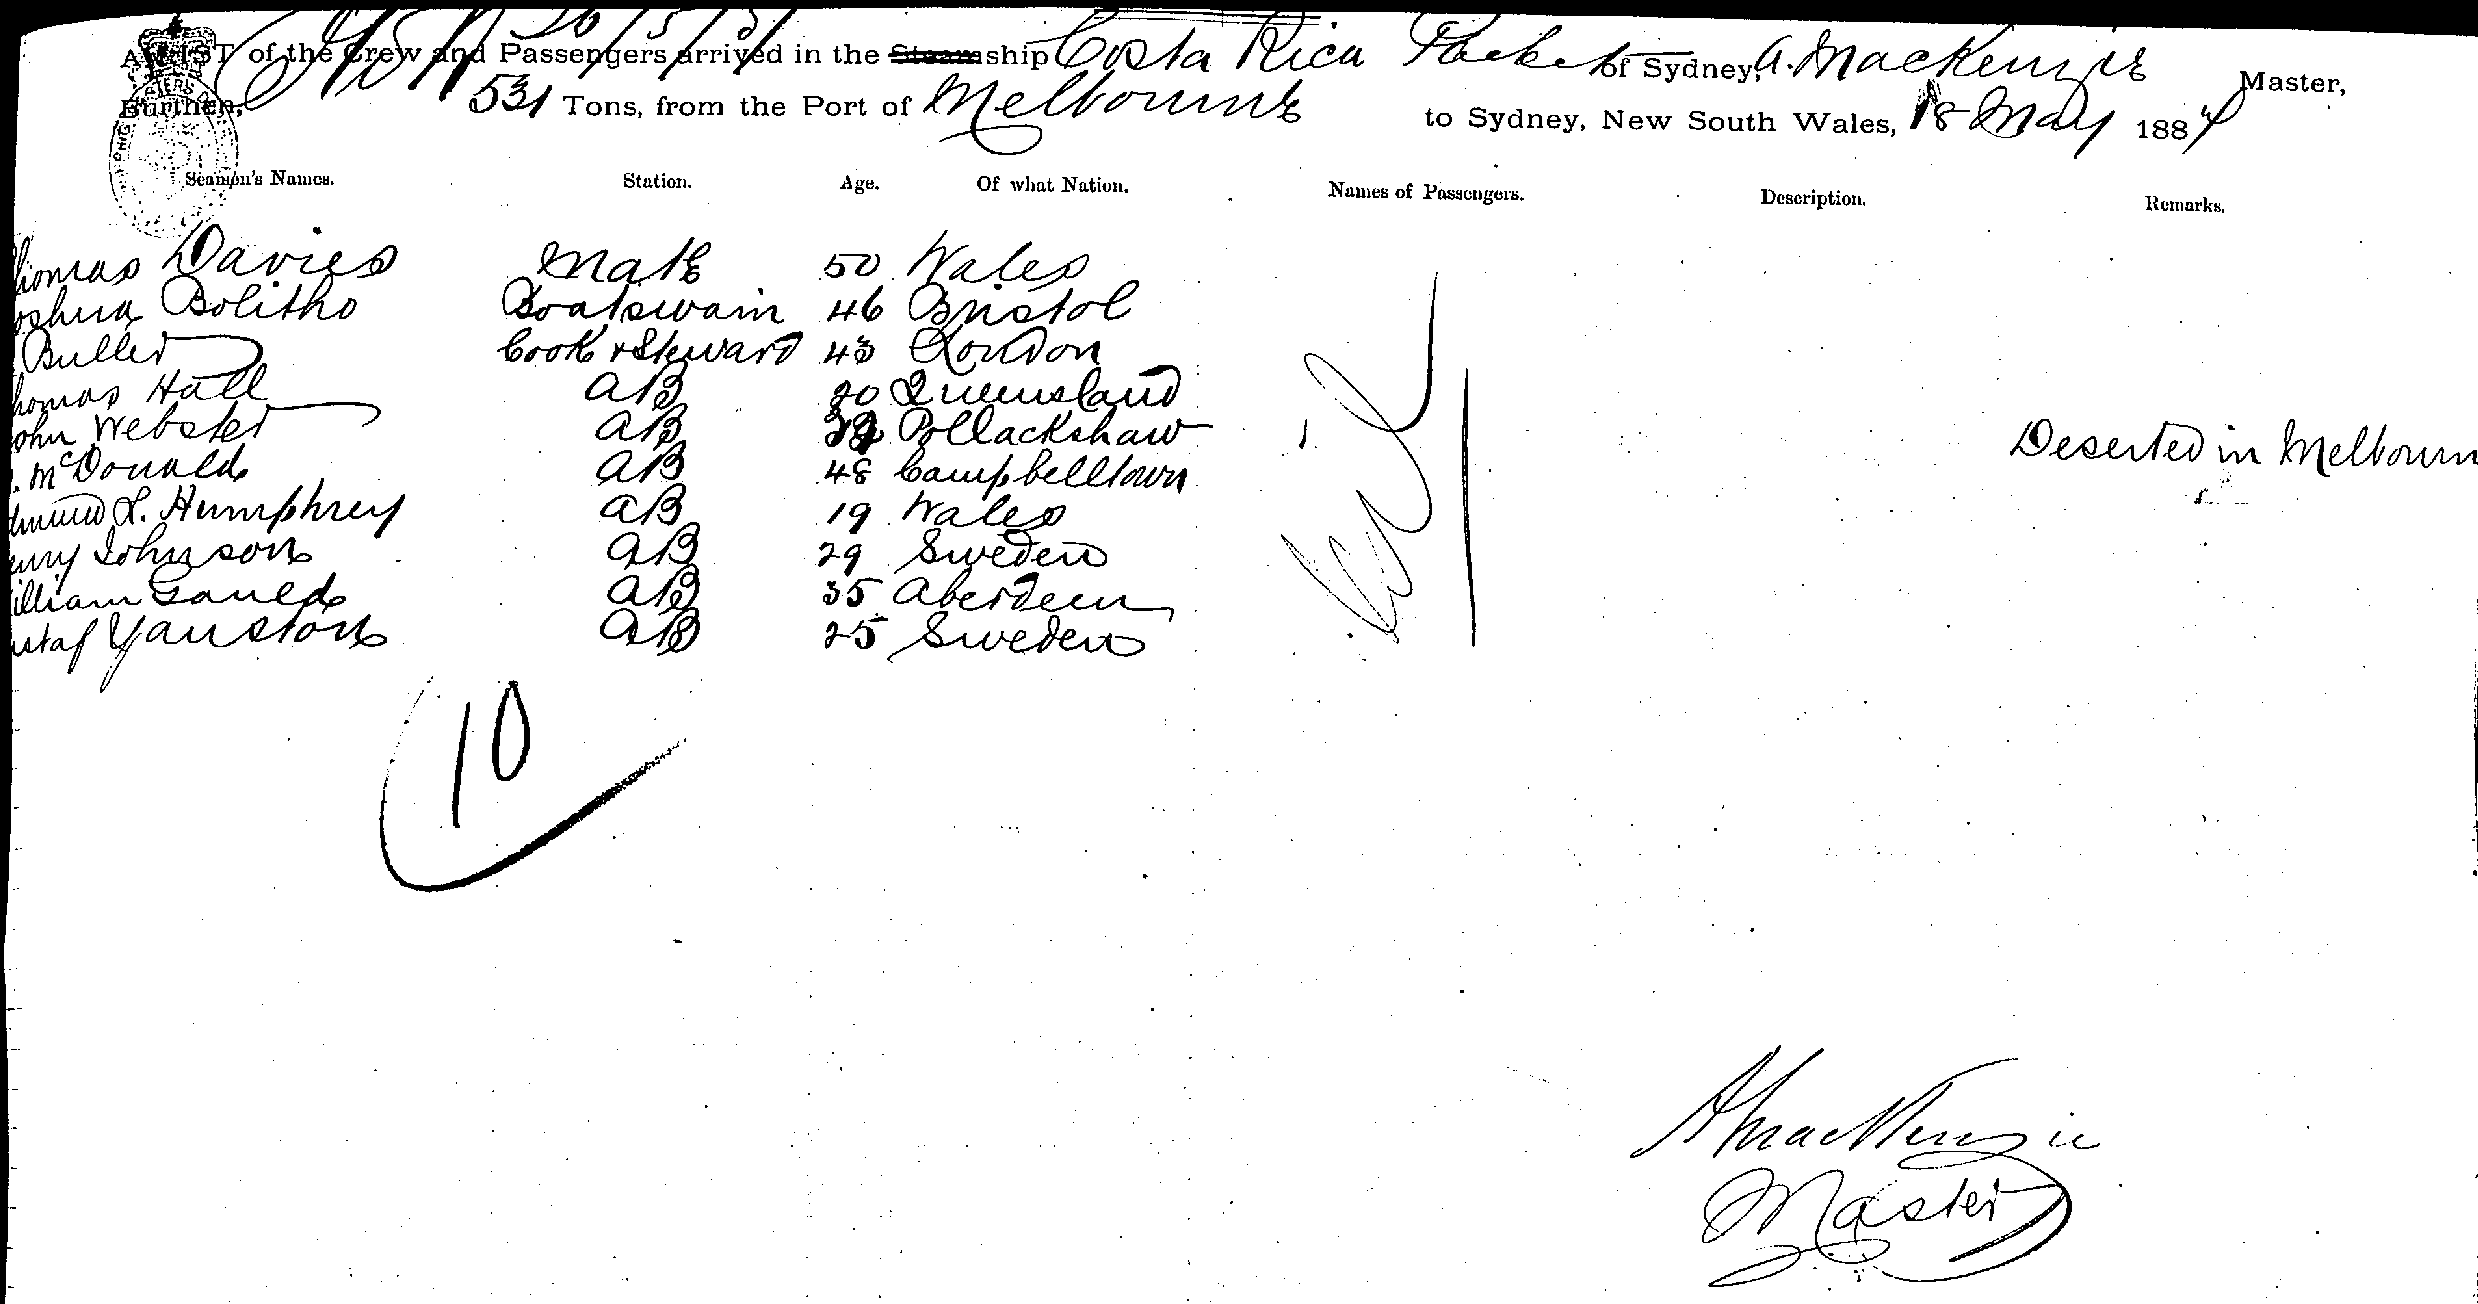 A LIST of the Crew and Passengers arrived in the Steamship Costa Rica Packet of Sydney, A. MacKenzie Master,
Burthen, 531 Tons, from the Port of Melbourne to Sydney, New South Wales, 18 May 1887
Seamen's Names. Station. Age. Of what Nation. Names of Passengers. Description. Remarks.
homas Davies Mate 50 Wales
oshua Bolitho Boatswain 46 Bristol
Butler Cook & Steward 43 London
homas Hall AB 20 Queensland
ohn Webster AB Pollackshaw Deserted in Melbourn
. McDonald AB 48 Campbelltown
dmund L. Humphrey AB 19 Wales
enry Johnson AB 29 Sweden
illiam Gauld AB 35 Aberdeen
ustaf Yanston AB 25 Sweden
Nil
10
A MacKenzie
Master